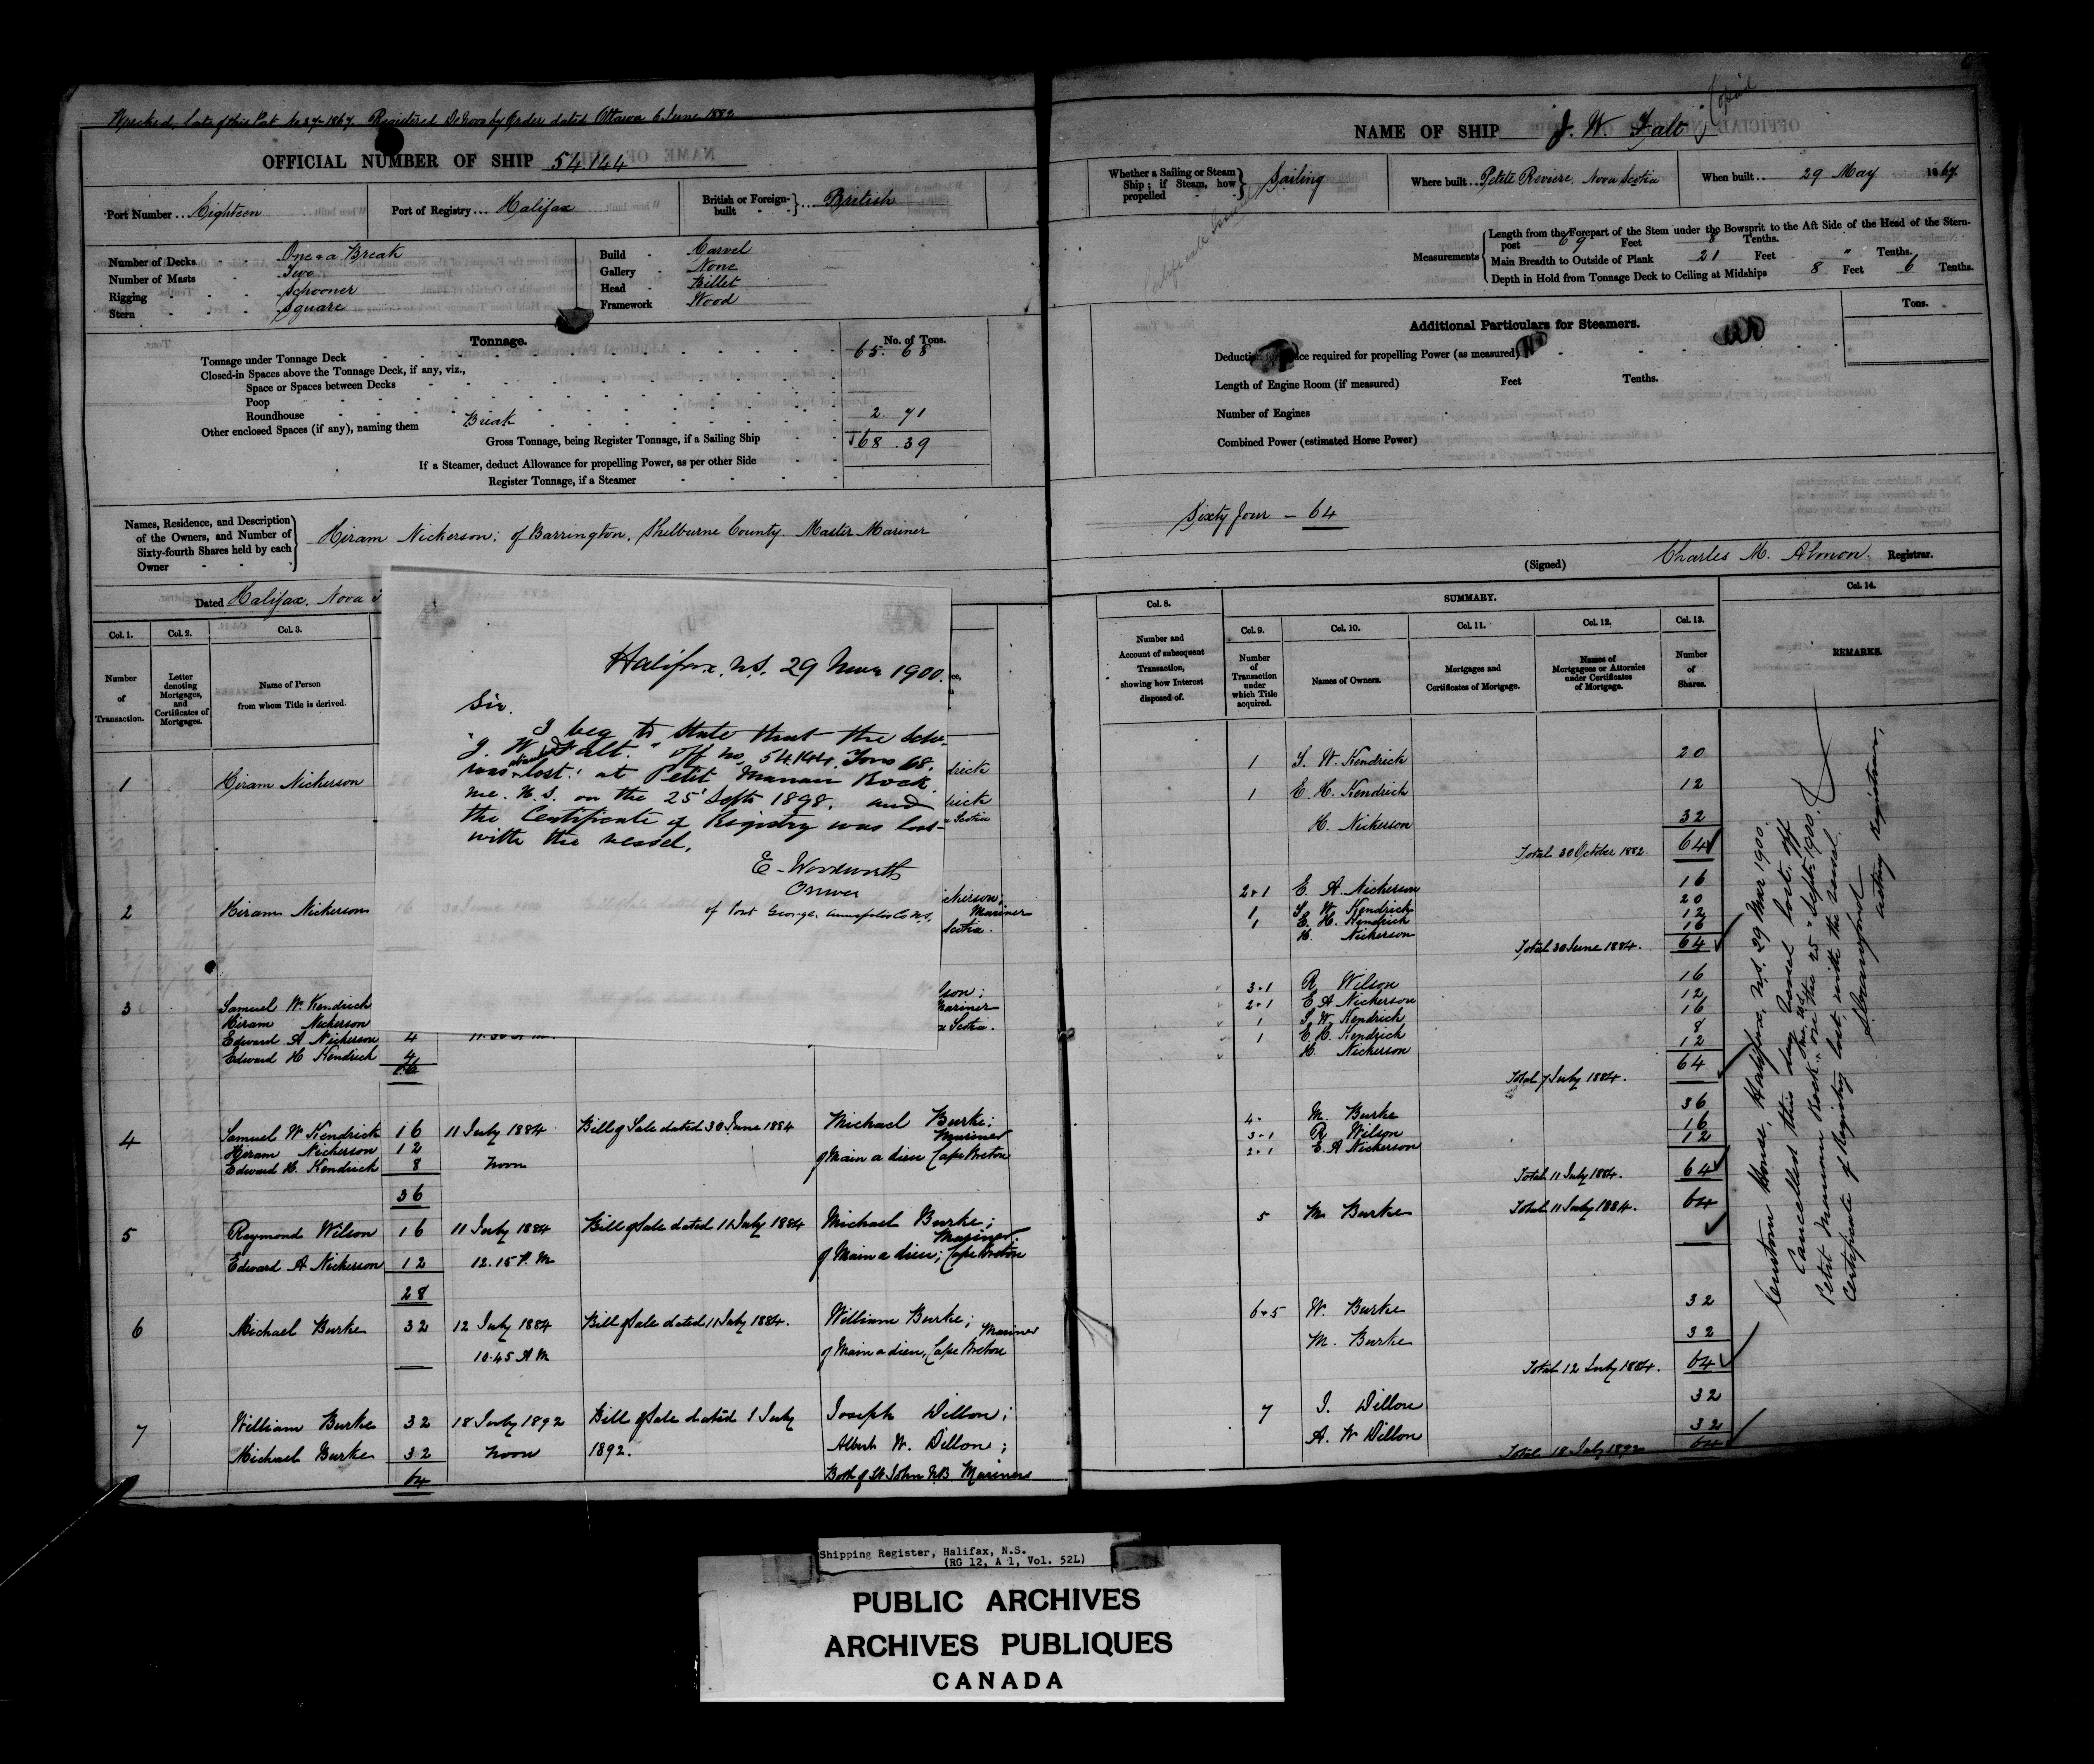 Wrecked, late of this Port No 27-1867. Registered De Novo by Order dated Ottawa 6 June 1882
OFFICIAL NUMBER OF SHIP 54.144
Port Number ... Eighteen
Port of Registry ... Halifax
British or Foreign-built } ... British
Number of Decks One & a Break
Number of Masts Two
Rigging Schooner
Stern Square
Build Carvel
Gallery None
Head Billet
Framework Wood
Tonnage.
No. of Tons.
Tonnage under Tonnage Deck 65. 68
Closed-in Spaces above the Tonnage Deck, if any, viz.,
Space or Spaces between Decks
Poop
Roundhouse
Other enclosed Spaces (if any), naming them Break 2. 71
Gross Tonnage, being Register Tonnage, if a Sailing Ship 68. 39
If a Steamer, deduct Allowance for propelling Power, as per other Side
Register Tonnage, if a Steamer
Names, Residence, and Description
of the Owners, and Number of
Sixty-fourth Shares held by each
Owner
Hiram Nickerson; of Barrington, Shelburne County. Master Mariner
Dated Halifax. Nova
Col. 1. Col. 2. Col. 3.
Number of Transaction.
Letter denoting Mortgages, and Certificates of Mortgages.
Name of Person from whom Title is derived.
1 Hiram Nickerson
2 Hiram Nickerson
3 Samuel W. Kendrick
Hiram Nickerson
Edward A Nickerson 4
Edward H Kendrick 4
Halifax. N.S. 29 Mar 1900.
Sir.
I beg to state that the Schr
"J. W. Falt." off no. 54.144. Tons 68.
was lost. at Petit Manan Rock.
me. U.S. on the 25' Sept 1898. and
the Certificate of Registry was lost
with the vessel.
E. Woodworth
Owner
of Port George. Annapolis Co N.S.
drick
drick
Scotia
ckerson,
Mariner
Scotia.
lson;
Mariner
Scotia.
4 Samuel W Kendrick 16 11 July 1884 Bill of Sale dated 30 June 1884 Michael Burke;
Mariner
Hiram Nickerson 12
Edward H. Kendrick 8 Noon of Main a dieu Cape Breton
36
5 Raymond Wilson 16 11 July 1884 Bill of Sale dated 11 July 1884 Michael Burke;
Mariner
Edward A Nickerson 12 12.15 P. M of Main a dieu; Cape Breton
28
6 Michael Burke 32 12 July 1884 Bill of Sale dated 11 July 1884. William Burke;
Mariner
10.45 A M of Main a dieu, Cape Breton
7 William Burke 32 18 July 1892 Bill of Sale dated 1 July Joseph Dillon;
Michael Burke 32 Noon 1892. Albert W. Dillon;
64 Both of St John N.B. Mariners
Copied
NAME OF SHIP J. W. Falt
Whether a Sailing or Steam Ship; if Steam, how propelled } Sailing
Where built .. Petite Reviere. Nova Scotia
When built .. 29 May 1867.
Certificate
Measurements
Length from the Forepart of the Stem under the Bowsprit to the Aft Side of the Head of the Stern-
post 69 Feet 8 Tenths.
Main Breadth to Outside of Plank 21 Feet " Tenths.
Depth in Hold from Tonnage Deck to Ceiling at Midships 8 Feet 6 Tenths.
Tons.
Additional Particulars for Steamers.
Deduction for space required for propelling Power (as measured)
Length of Engine Room (if measured) Feet Tenths.
Number of Engines
Combined Power (estimated Horse Power)
Sixty four - 64
(Signed) Charles M. Almon. Registrar.
Col. 8. SUMMARY. Col. 14.
Col. 9. Col. 10. Col. 11. Col. 12. Col. 13.
Number and Account of subsequent Transaction, showing how Interest disposed of.
Number of Transaction under which Title acquired.
Names of Owners.
Mortgages and Certificates of Mortgage.
Names of Mortgagees or Attornies under Certificates of Mortgage.
Number of Shares.
REMARKS.
1 S. W. Kendrick 20
1 E. H. Kendrick 12
H. Nickerson 32
Total 30 October 1882. 64
2+1 E. A. Nickerson 16
1 S. W. Kendrick 20
1 E. H. Kendrick 12
H. Nickerson 16
Total 30 June 1884. 64
3+1 R. Wilson 16
2+1 E A Nickerson 12
1 S. W. Kendrick 16
1 E. H. Kendrick 8
H. Nickerson 12
Total 7 July 1884. 64
4. M. Burke 36
3+1 R. Wilson 16
2+1 E. A Nickerson 12
Total 11 July 1884. 64
5 M. Burke Total 11 July 1884. 64
6+5 W. Burke 32
M. Burke 32
Total 12 July 1884. 64
7 J. Dillon 32
A. W Dillon 32
Total 18 July 1892 64
Custom House, Halifax, N.S. 29 Mar 1900.
Cancelled this day. Vessel lost off
Petit Manan Rock, on the 25" Sept. 1900.
Certificate of Registry lost with the vessel.
acting Registrar,
Shipping Register, Halifax, N.S.
(RG 12, A 1, Vol. 52L)
PUBLIC ARCHIVES
ARCHIVES PUBLIQUES
CANADA